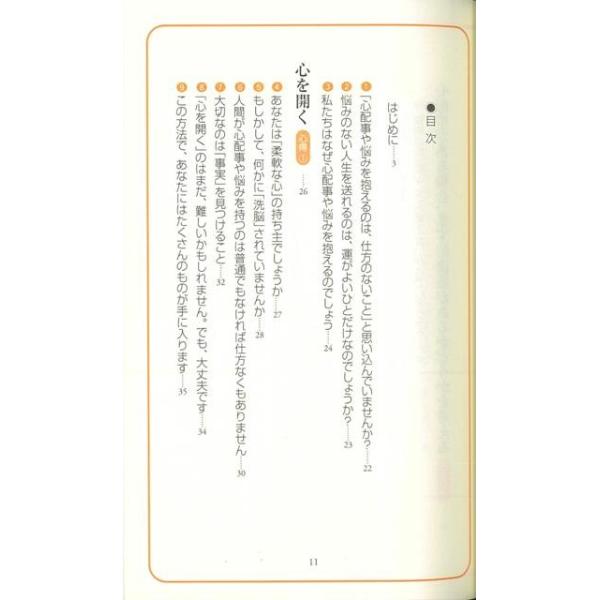 ●目次
はじめに……3
❶「心配事や悩みを抱えるのは、仕方のないこと」と思い込んでいませんか?……22
❷悩みのない人生を送れるのは、運がよいひとだけなのでしょうか?……23
❸私たちはなぜ心配事や悩みを抱えるのでしょう……24
心を開く 心得① ……26
❹あなたは「柔軟な心」の持ち主でしょうか……27
❺もしかして、何かに「洗脳」されていませんか……28
❻人間が心配事や悩みを持つのは普通でもなければ仕方なくもありません……30
❼大切なのは「事実」を見つけること……32
❽「心を開く」のはまだ、難しいかもしれません。でも、大丈夫です……34
❾この方法で、あなたにはたくさんのものが手に入ります……35
11